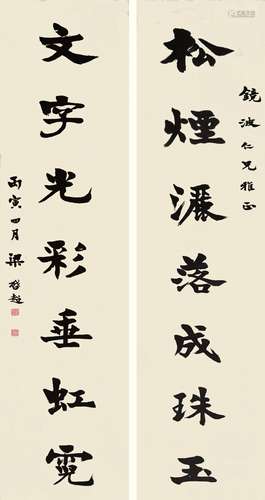 鏡波仁兄雅正
松煙灑落成珠玉
文字光彩垂虹霓
丙寅四月梁啓超